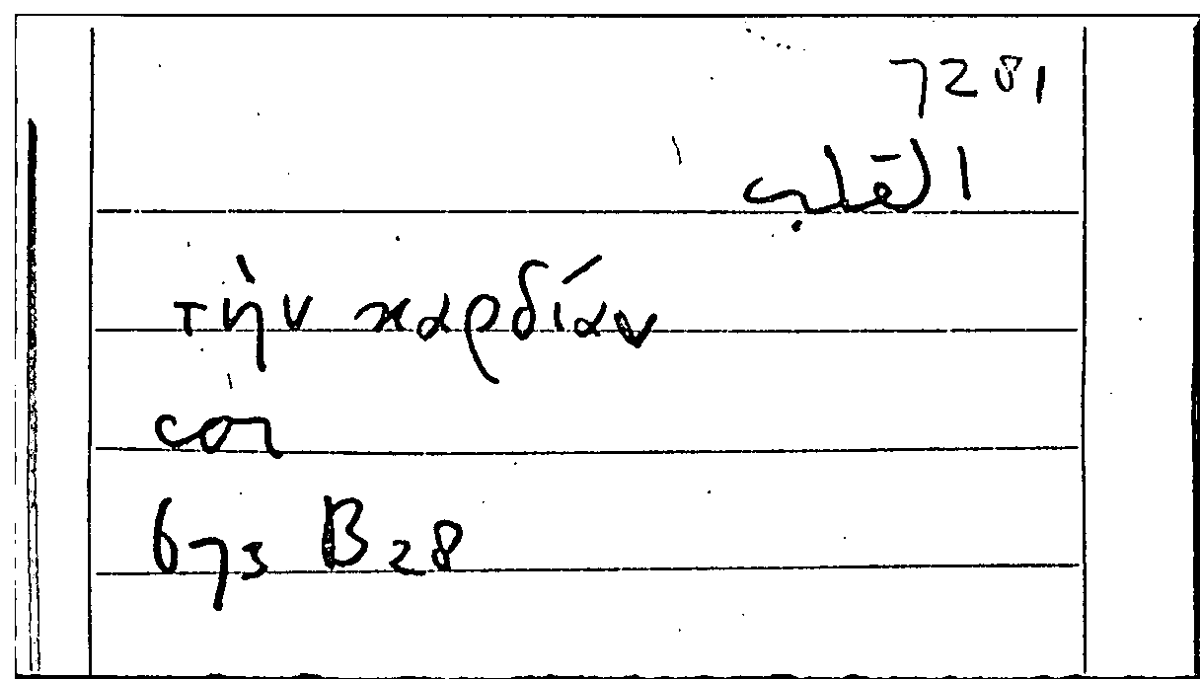 7281
القلب
τὴν καρδίαν
cor
673 B 28